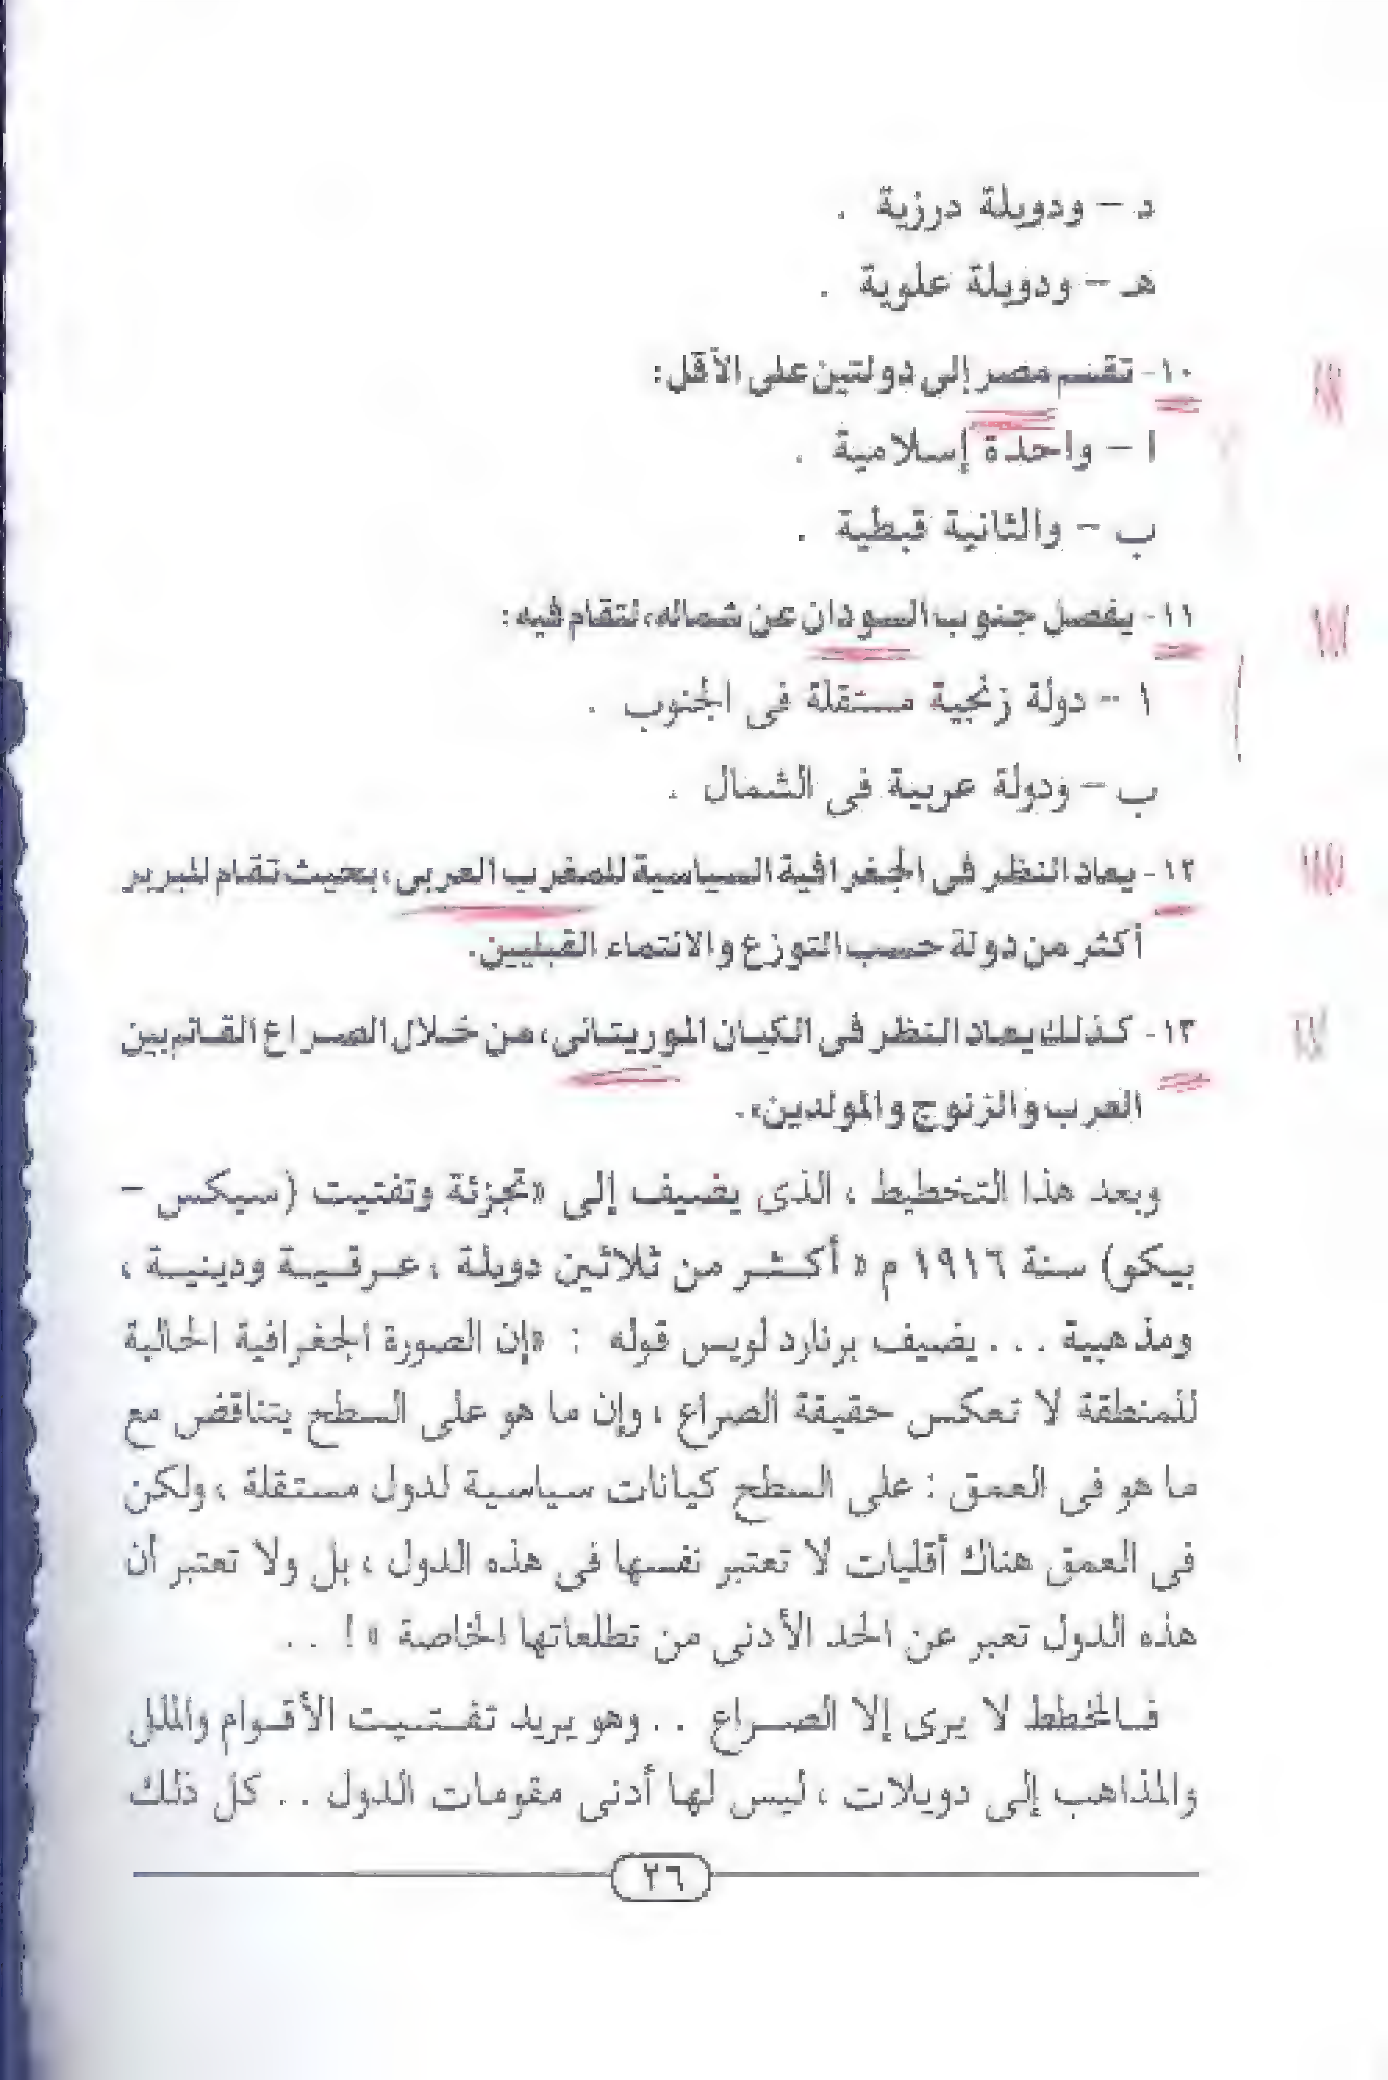 د – ودويلة درزية .
هـ – ودويلة علوية .
١٠- تقسم مصر إلى دولتين على الأقل:
ا – واحدة إسلامية .
ب – والثانية قبطية .
١١- يفصل جنوب السودان عن شماله، لتقام فيه:
ا – دولة زنجية مستقلة فى الجنوب .
ب – ودولة عربية فى الشمال .
١٢- يعاد النظر فى الجغرافية السياسية للمغرب العربى، بحيث تقام للبربر
أكثر من دولة حسب التوزع والانتماء القبليين.
١٣- كذلك يعاد النظر فى الكيان الموريتانى، من خلال الصراع القائم بين
العرب والزنوج والمولدين».
وبعد هذا التخطيط ، الذى يضيف إلى «تجزئة وتفتيت (سيكس –
بيكو) سنة ١٩١٦ م » أكثر من ثلاثين دويلة ، عرقية ودينية ،
ومذهبية . . . يضيف برنارد لويس قوله : «إن الصورة الجغرافية الحالية
للمنطقة لا تعكس حقيقة الصراع ، وإن ما هو على السطح يتناقض مع
ما هو فى العمق : على السطح كيانات سياسية لدول مستقلة ، ولكن
فى العمق هناك أقليات لا تعتبر نفسها فى هذه الدول ، بل ولا تعتبر أن
هذه الدول تعبر عن الحد الأدنى من تطلعاتها الخاصة » ! . .
فالمخطط لا يرى إلا الصراع . . وهو يريد تفتيت الأقوام والملل
والمذاهب إلى دويلات ، ليس لها أدنى مقومات الدول . . كل ذلك
٢٦